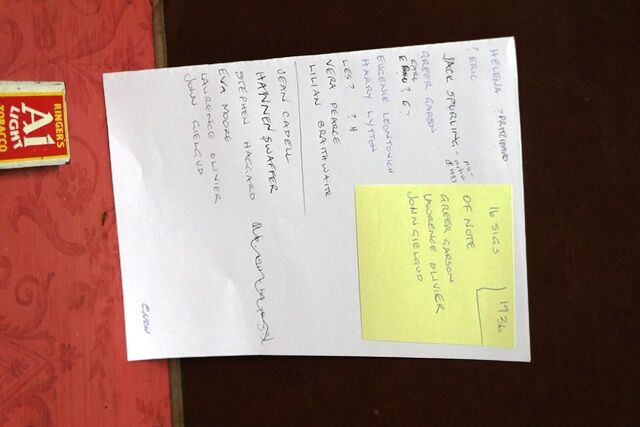 HELENA ? PRITCHARD
? ERIC
JACK SPURLING.
GREER GARSON
EARL
E ? G ?
EUGENIE LEONTOVICH
HARRY LYTTON
LES ? ? H
VERA PEARCE
LILIAN BRAITHWAITE
JEAN CADELL
HANNEN SWAFFER
STEPHEN HAGGARD
EVA MOORE
LAURENCE OLIVIER
JOHN GIELGUD
16 SIGS 1936
OF NOTE
GREER GARSON
LAWRENCE OLIVIER
JOHN GIELGUD
RINGER'S
A1
LIGHT
TOBACCO